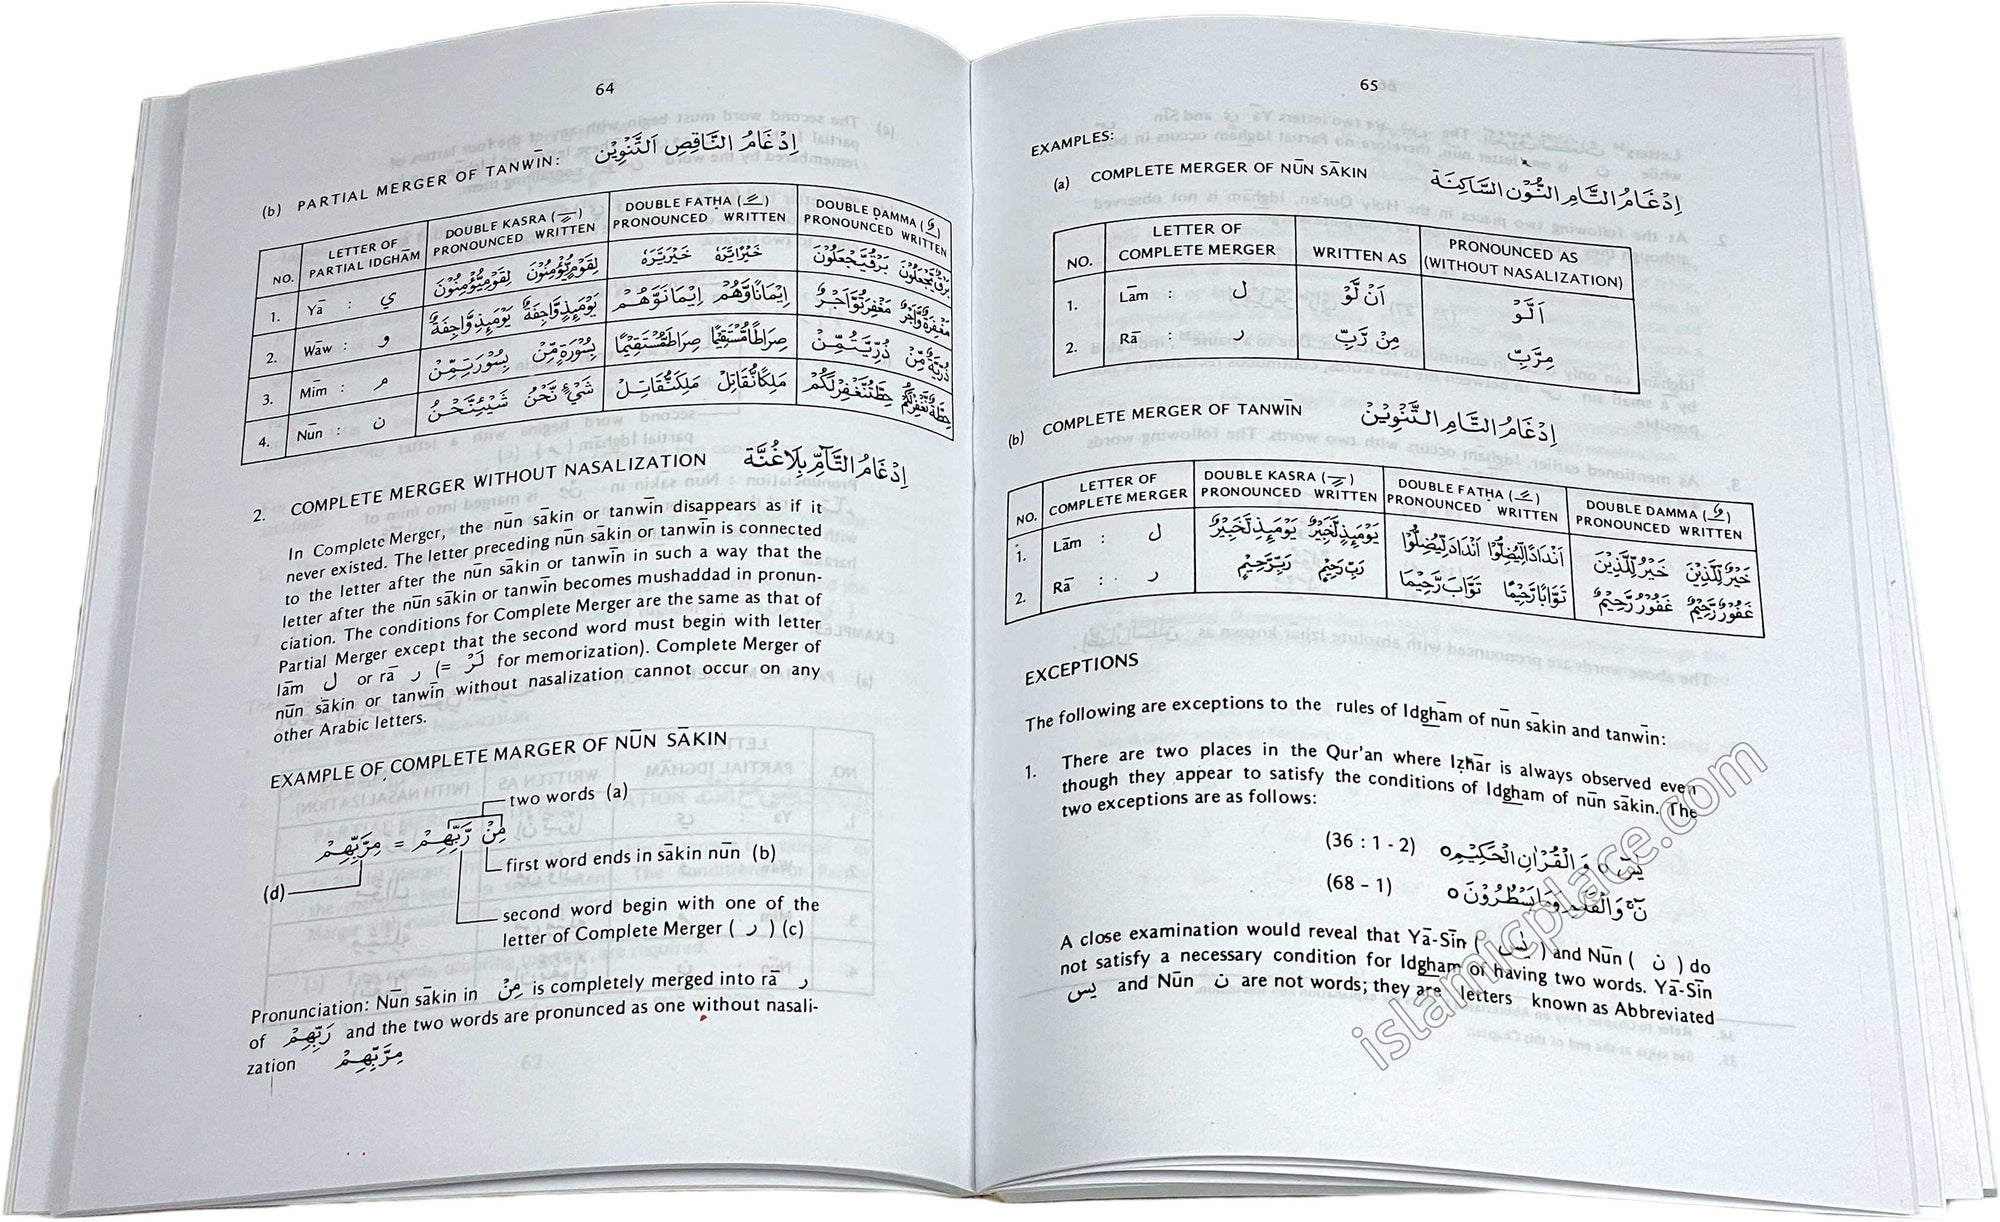 64
(b) PARTIAL MERGER OF TANWĪN: اِدْغَامُ النَّاقِصِ اَلتَّنْوِيْن
NO. LETTER OF PARTIAL IDGHĀM DOUBLE KASRA ( ـٍ ) PRONOUNCED WRITTEN DOUBLE FATḤA ( ـً ) PRONOUNCED WRITTEN DOUBLE ḌAMMA ( ـٌ ) PRONOUNCED WRITTEN
1. Yā : ي
2. Wāw : و
3. Mīm : م
4. Nūn : ن
2. COMPLETE MERGER WITHOUT NASALIZATION اِدْغَامُ التَّآمِّ بِلَاغُنَّة
In Complete Merger, the nūn sākin or tanwīn disappears as if it
never existed. The letter preceding nūn sākin or tanwīn is connected
to the letter after the nūn sākin or tanwīn in such a way that the
letter after the nūn sākin or tanwīn becomes mushaddad in pronun-
ciation. The conditions for Complete Merger are the same as that of
Partial Merger except that the second word must begin with letter
lām ل or rā ر (= لَرْ for memorization). Complete Merger of
nūn sākin or tanwīn without nasalization cannot occur on any
other Arabic letters.
EXAMPLE OF COMPLETE MARGER OF NŪN SĀKIN
two words (a)
مِرَّبِّهِمْ = مِنْ رَّبِّهِمْ
first word ends in sākin nūn (b)
(d)
second word begin with one of the
letter of Complete Merger ( ر ) (c)
Pronunciation: Nūn sākin in مِنْ is completely merged into rā ر
of رَبِّهِمْ and the two words are pronounced as one without nasali-
zation مِرَّبِّهِمْ
65
EXAMPLES:
(a) COMPLETE MERGER OF NŪN SĀKIN اِدْغَامُ التَّامِ النُّوْن السَّاكِنَة
NO. LETTER OF COMPLETE MERGER WRITTEN AS PRONOUNCED AS (WITHOUT NASALIZATION)
1. Lām : ل اَنْ لَّوْ اَلَّوْ
2. Rā : ر مِنْ رَّبِّ مِرَّبِّ
(b) COMPLETE MERGER OF TANWĪN اِدْغَامُ التَّامِ التَّنْوِيْن
NO. LETTER OF COMPLETE MERGER DOUBLE KASRA ( ـٍ ) PRONOUNCED WRITTEN DOUBLE FATḤA ( ـً ) PRONOUNCED WRITTEN DOUBLE DAMMA ( ـٌ ) PRONOUNCED WRITTEN
1. Lām : ل
2. Rā : ر
EXCEPTIONS
The following are exceptions to the rules of Idghām of nūn sākin and tanwīn:
1. There are two places in the Qur'an where Iẓhār is always observed even
though they appear to satisfy the conditions of Idgham of nūn sākin. The
two exceptions are as follows:
(36 : 1 - 2) يٰسٓ ه وَالْقُرْاٰنِ الْحَكِيْمِ ه
(68 – 1) نٓ ه وَالْقَلَمِ وَمَا يَسْطُرُوْنَ ه
A close examination would reveal that Yā-Sīn ( يٰس ) and Nūn ( ن ) do
not satisfy a necessary condition for Idgham of having two words. Yā-Sīn
يس and Nūn ن are not words; they are letters known as Abbreviated
islamicplace.com